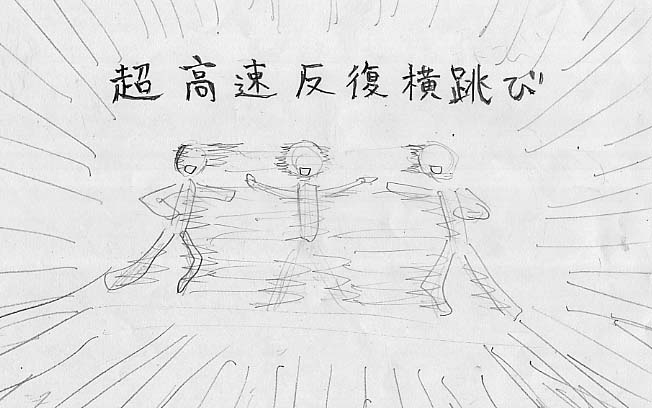 超高速反復横跳び